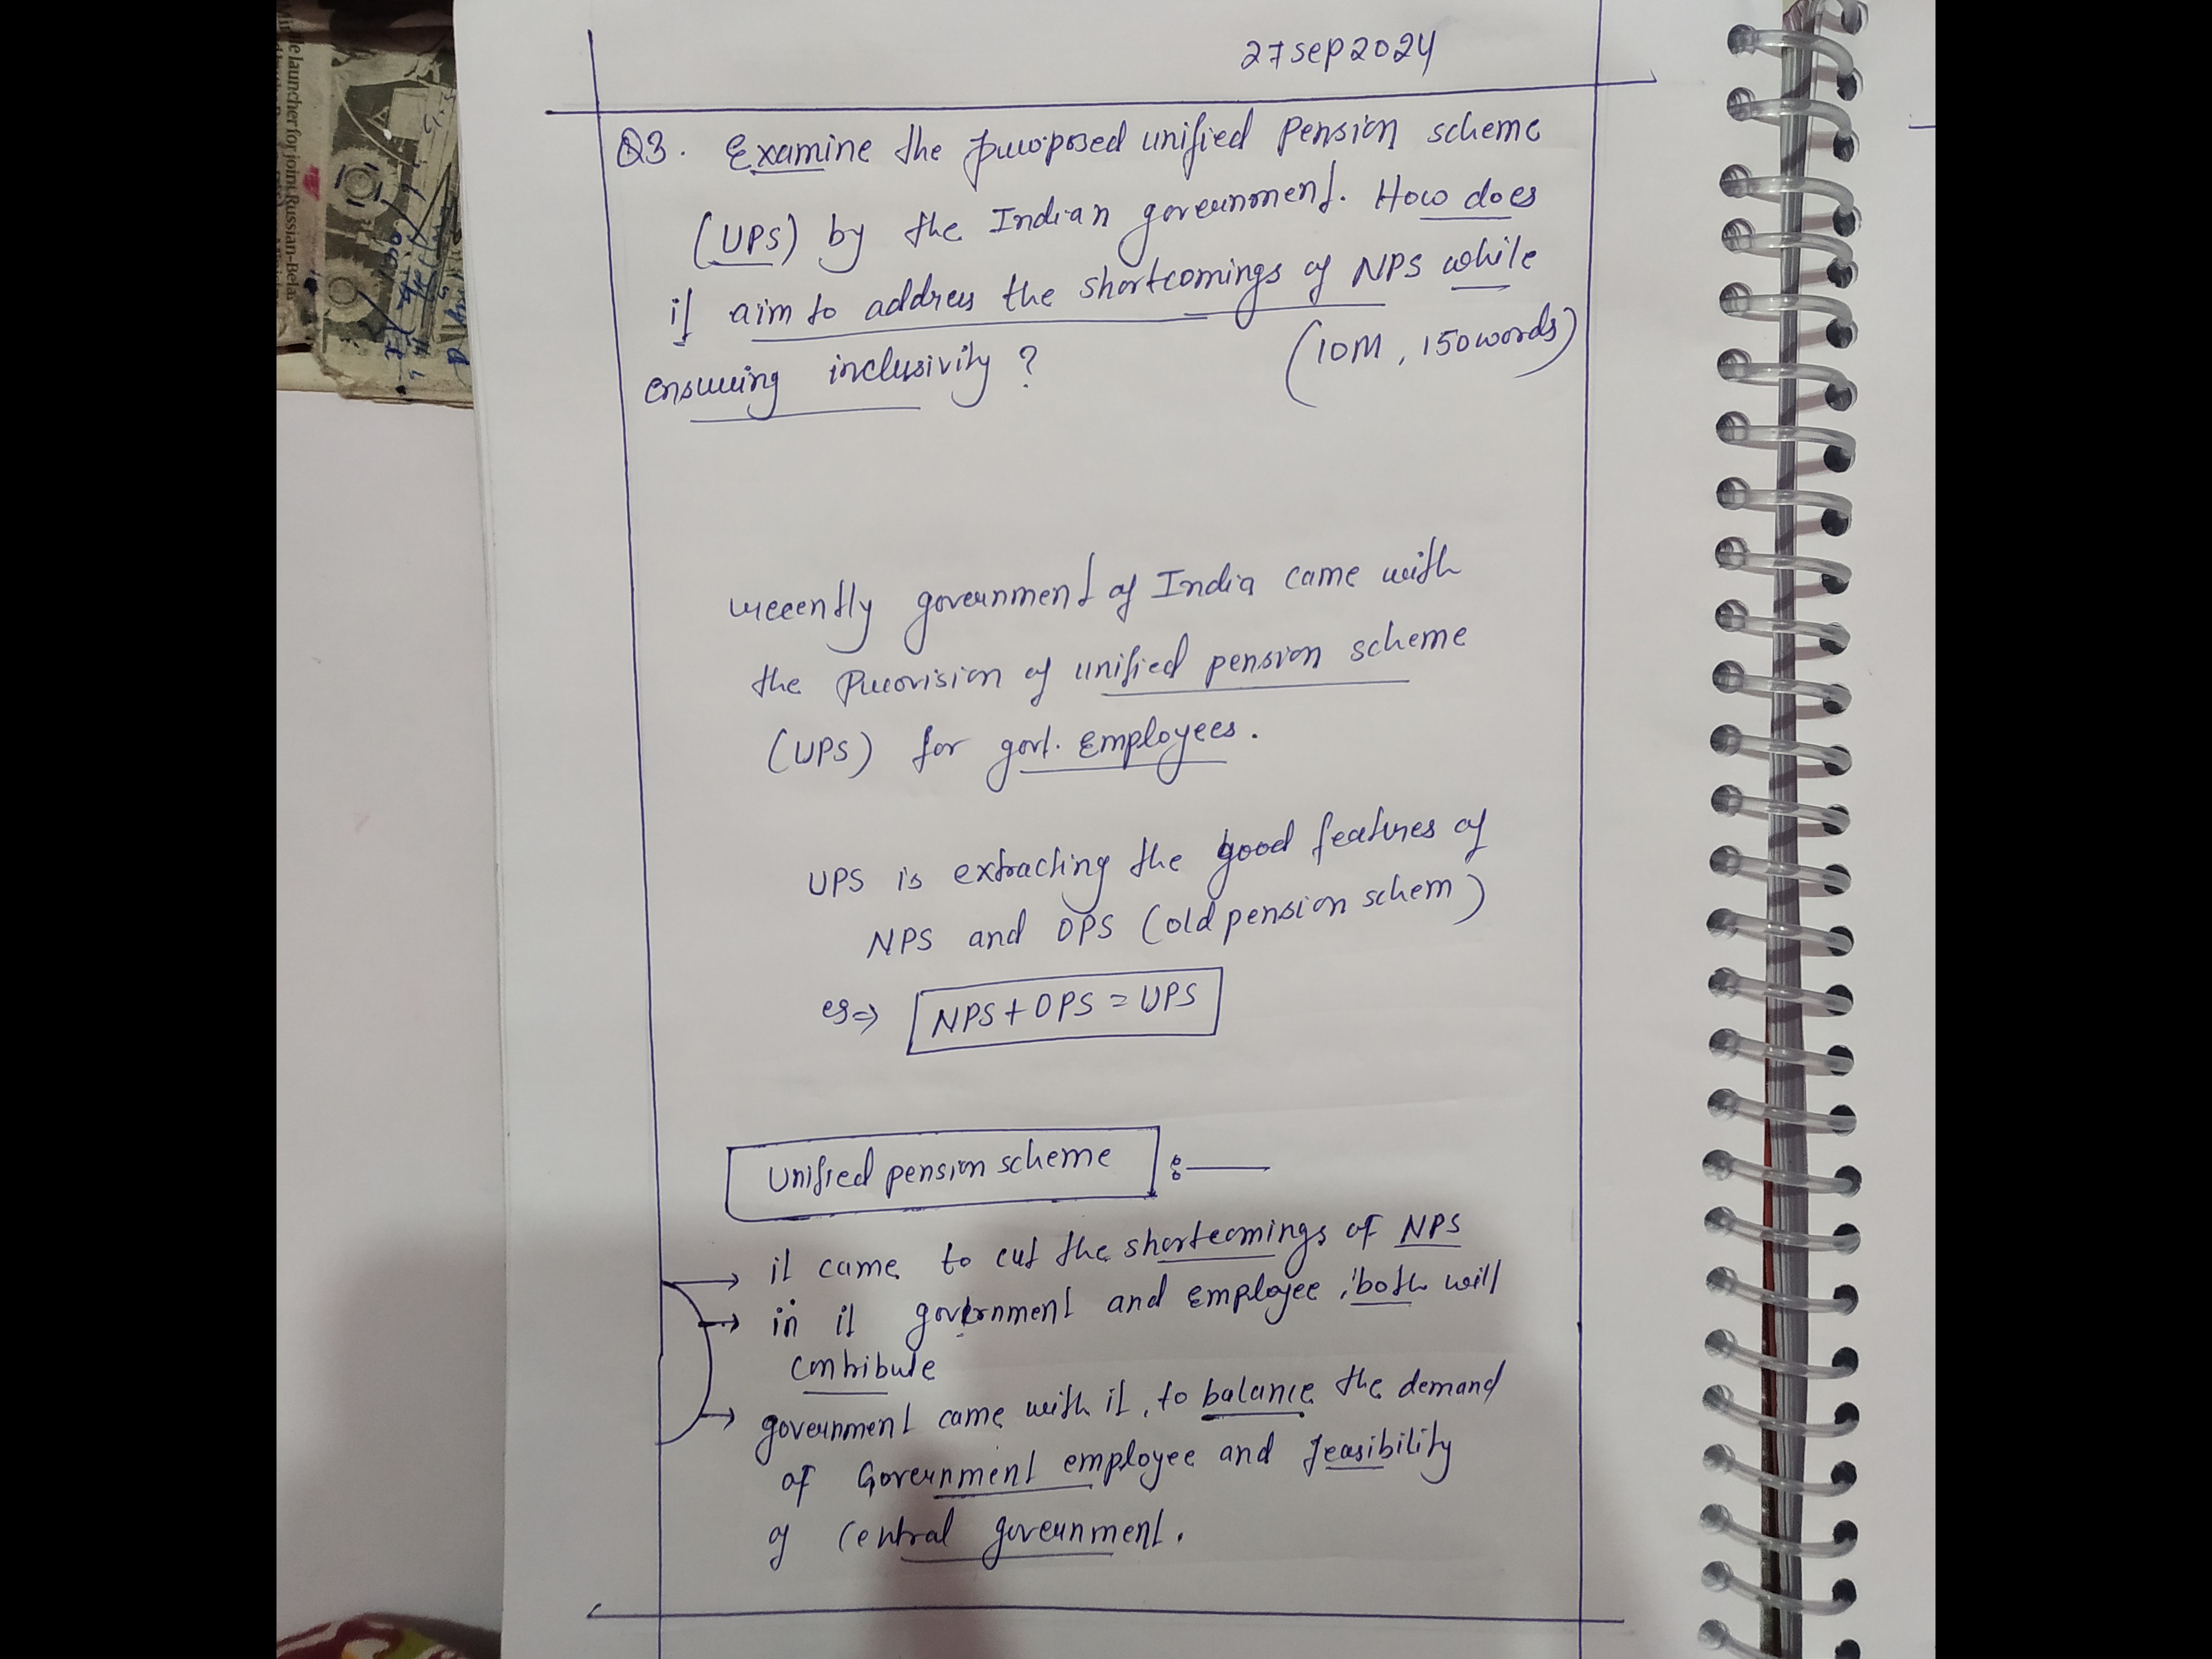 27 sep 2024
Q3. Examine the proposed unified Pension scheme
(UPS) by the Indian government. How does
it aim to address the shortcomings of NPS while
ensuring inclusivity ?
(10M, 150 words)
recently government of India came with
the Provision of unified pension scheme
(UPS) for govt. employees.
UPS is extracting the good features of
NPS and OPS (old pension schem)
eg ⇒ NPS + OPS = UPS
Unified pension scheme :—
→ it came to cut the shortcomings of NPS
→ in it government and employee, both will
contribute
→ government came with it, to balance the demand
of Government employee and feasibility
of Central government.
le launcher for joint Russian-Belar